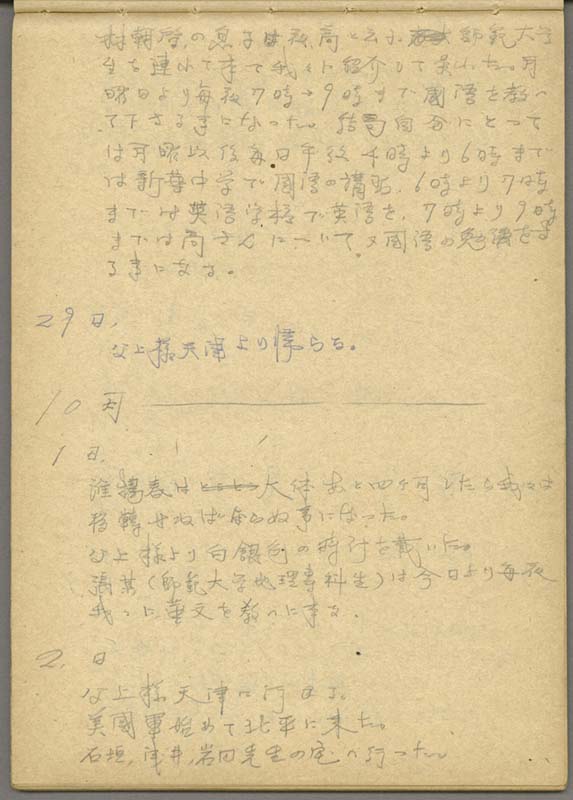 の息子は
師範大学
生を連れて来て我々に紹介して呉れた。月
曜日より毎夜7時→9時まで國語を教へ
て下さる事になった。結局自分にとって
は月曜以後毎日午後4時より6時まで
は新 中学で國語の講習、6時より7時
までは英語学校で英語を、7時より9時
までは さんについて又國語の勉強をす
る事になる。
29日、
父上様天津より帰らる。
10月
1日、
は 大体あと四ケ月したら我々は
移轉せねばならぬ事になった。
父上様より白銀色の時計を戴いた。
(師範大学地理専科生)は今日より毎夜
我々に華文を教へに来る。
2、日
父上様天津に行はる。
美國軍始めて北平に来た。
石垣、 井、岩田先生の宅へ行った。